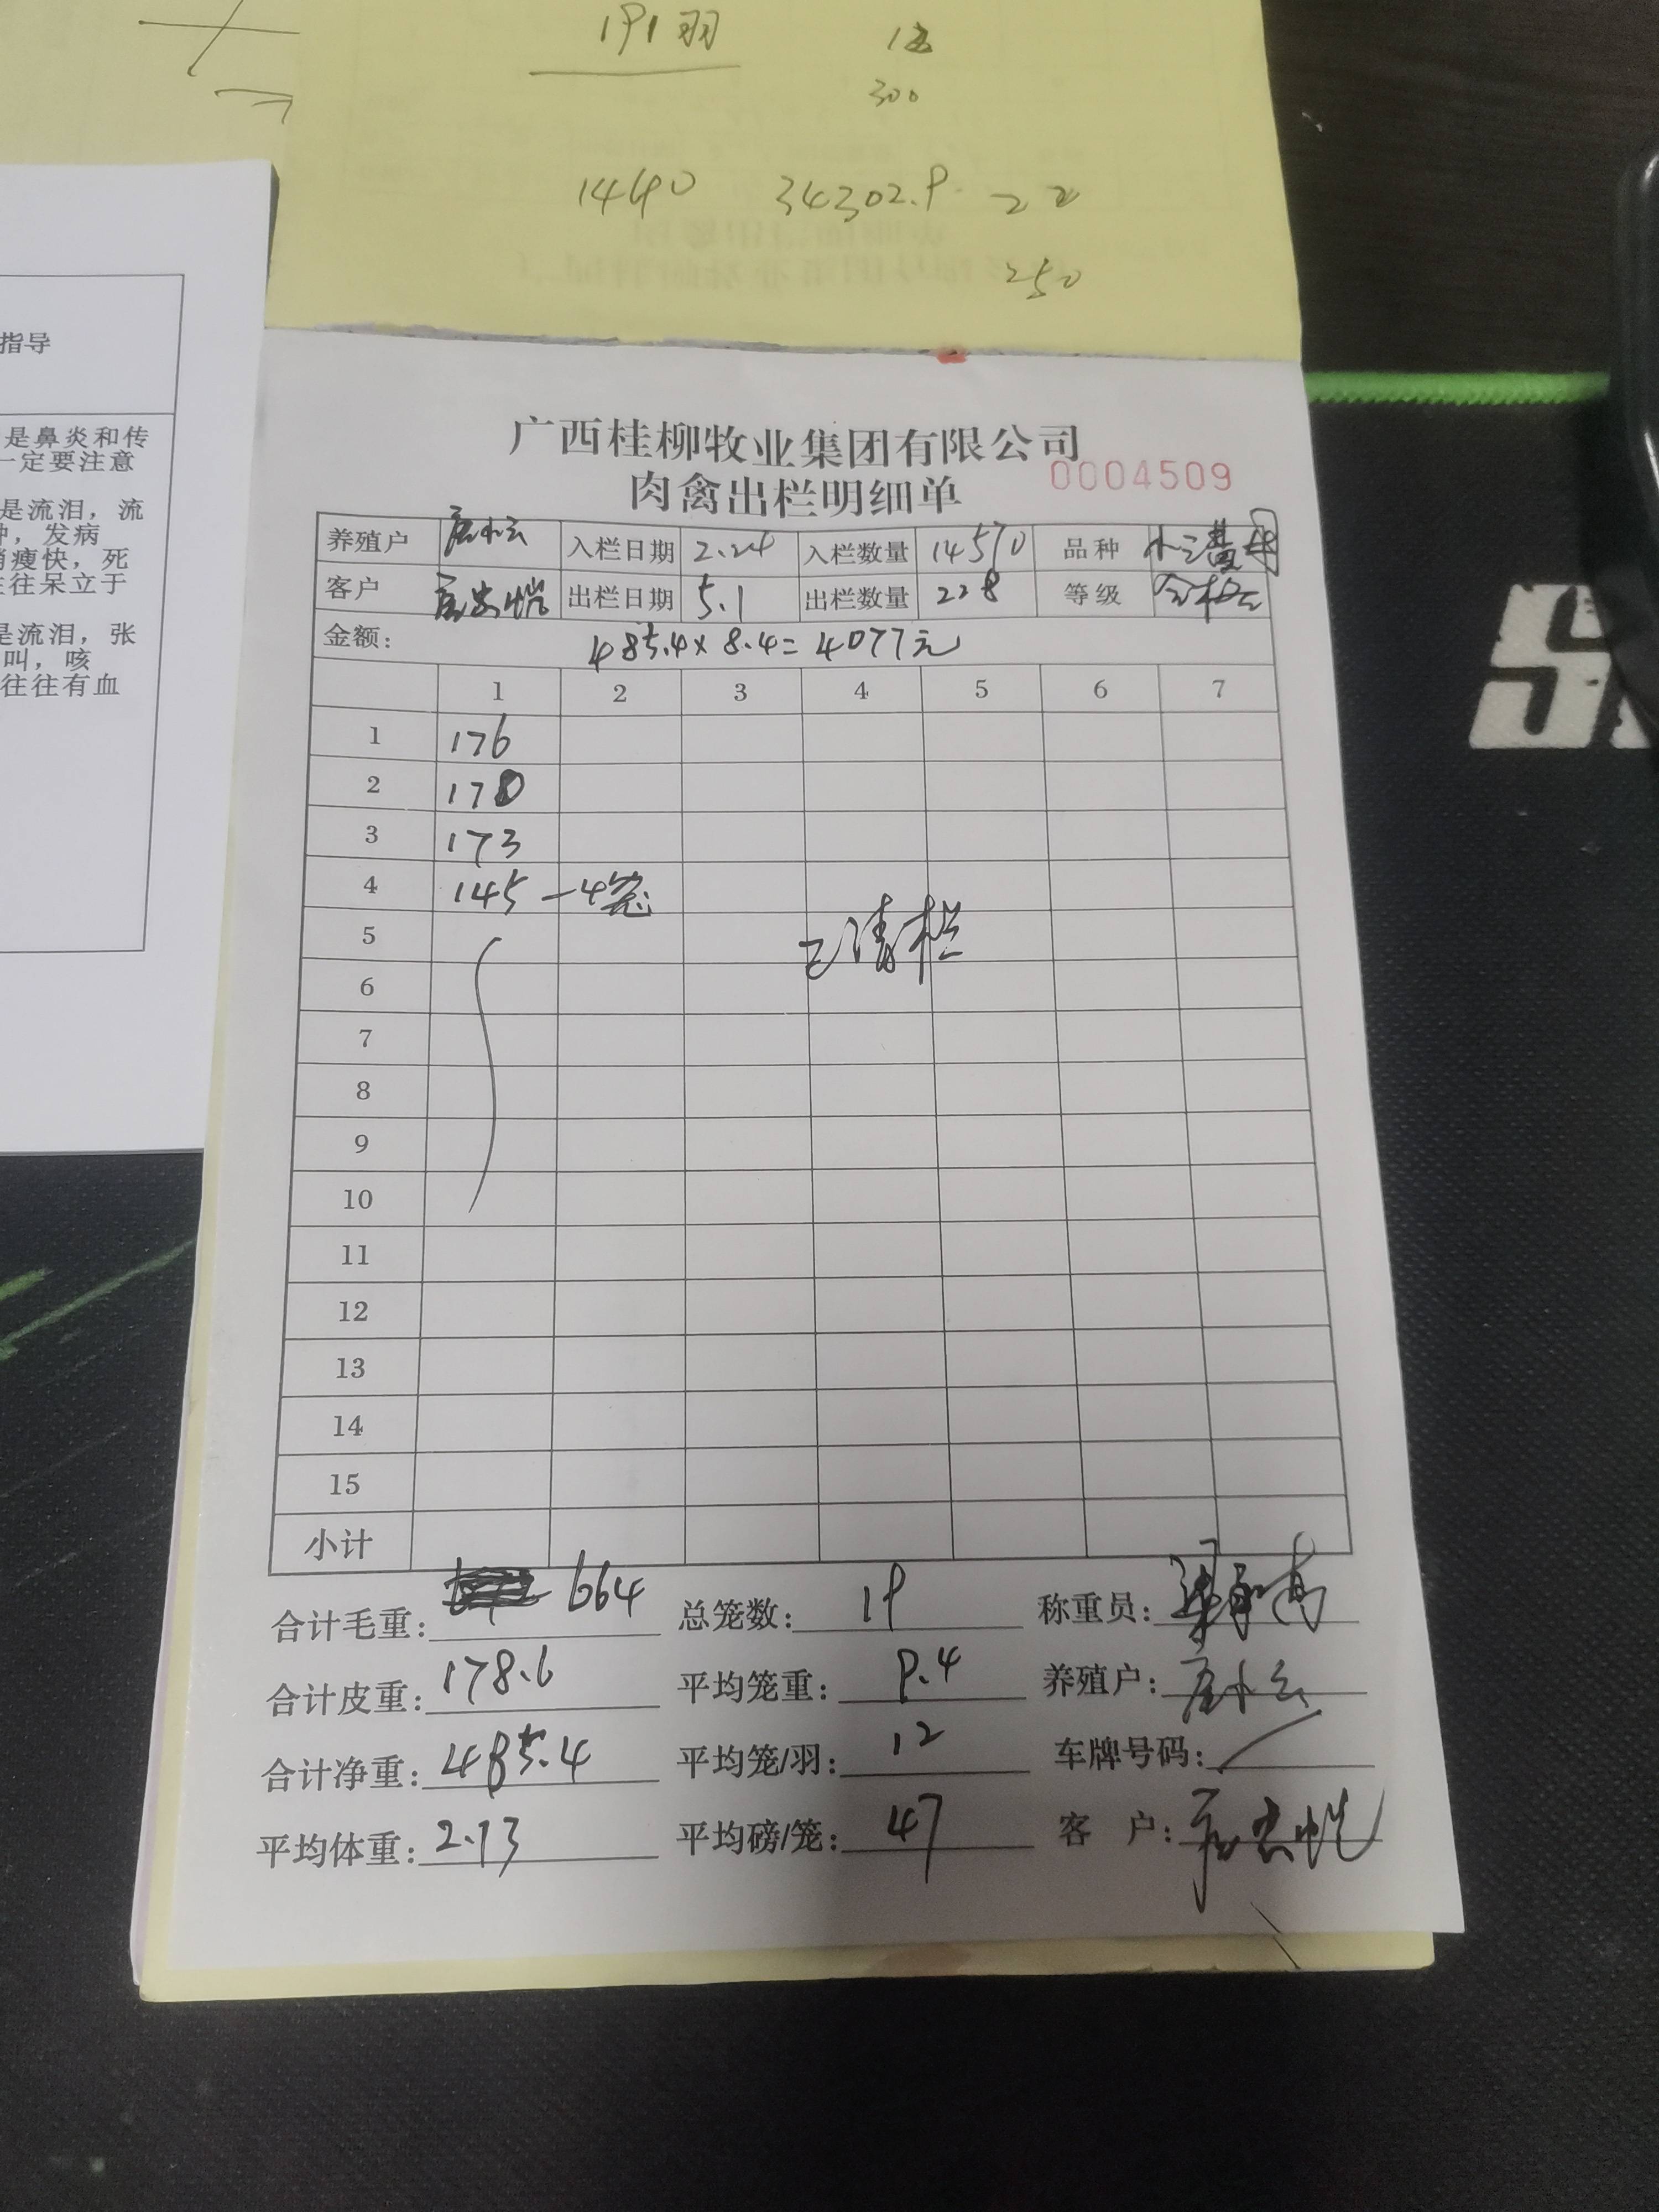 191羽
13
300
1440 34302.9 22
250
指导
是鼻炎和传
一定要注意
是流泪，流
中，发病
消瘦快，死
往往呆立于
是流泪，张
叫，咳
往往有血
广西桂柳牧业集团有限公司
肉禽出栏明细单 0004509
养殖户 入栏日期 2.24 入栏数量 14570 品种
客户 出栏日期 5.1 出栏数量 228 等级 合格
金额： 485.4×8.4=4077元
1 2 3 4 5 6 7
1 176
2 170
3 173
4 145 —4笼
5 已清栏
6
7
8
9
10
11
12
13
14
15
小计
合计毛重： 664 总笼数： 19 称重员：
合计皮重： 178.6 平均笼重： 9.4 养殖户：
合计净重： 485.4 平均笼/羽： 12 车牌号码： /
平均体重： 2.13 平均磅/笼： 47 客 户：